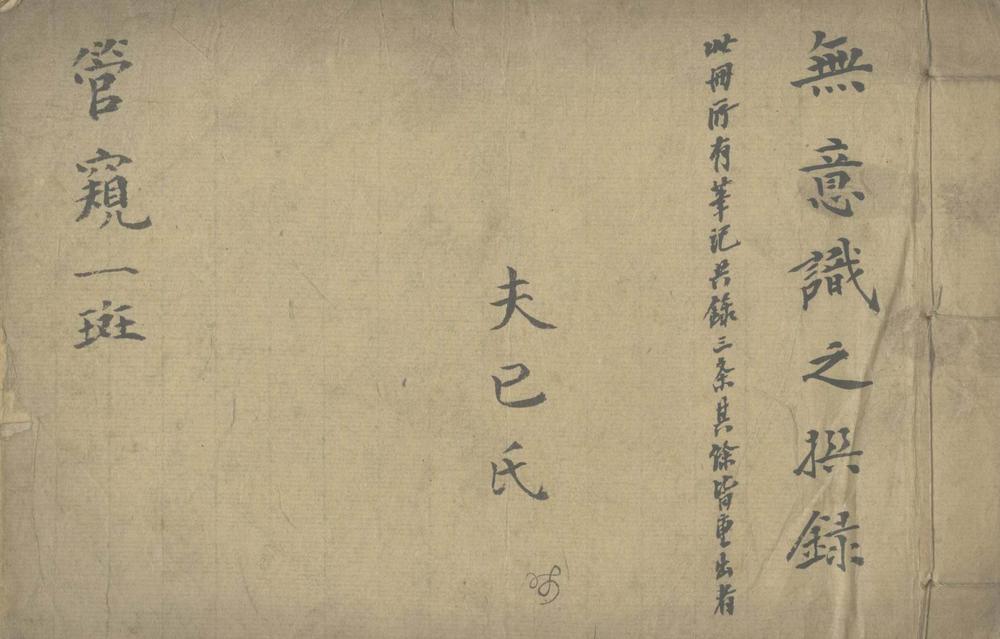 無意識之撰録
此冊所有筆記共錄三条其餘皆重出者
夫已氏
管窺一斑